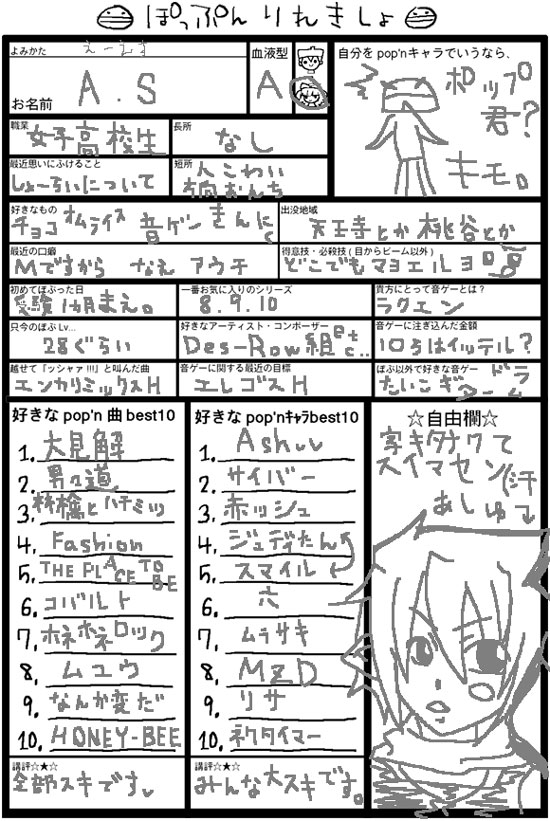 ぽっぷん りれきしょ
よみかた
えーえす
お名前
A.S
血液型
A
自分をpop'nキャラでいうなら、
ポップ
君?
キモ。
職業
女子高校生
長所
なし
最近思いにふけること
しょーらいについて
短所
人こわい
方向おんち
好きなもの
チョコ オムライス 音ゲン きんにく
出没地域
天王寺とか 桃谷とか
最近の口癖
Mですから なえ アウチ
得意技・必殺技(目からビーム以外)
どこでもマヨエルヨ
初めてぽぷった日
受験1カ月まえ。
一番お気に入りのシリーズ
8.9.10
貴方にとって音ゲーとは?
ラクエン
只今のぽぷLv...
28ぐらい
好きなアーティスト・コンポーザー
Des-Row組 etc..
音ゲーに注ぎ込んだ金額
10ちはイッテル?
越せて「ッシャァ!!!」と叫んだ曲
エンカリミックスH
音ゲーに関する最近の目標
エレゴスH
ぽぷ以外で好きな音ゲー
たいこ ギター ドラム
好きなpop'n曲best10
1. 大見解
2. 男々道
3. 林檎とハチミツ
4. Fashion
5. THE PLACE TO BE
6. コバルト
7. ホネホネロック
8. ムユウ
9. なんか変だ
10. HONEY-BEE
講評☆★☆
全部スキです。
好きなpop'nキャラbest10
1. Ash
2. サイバー
3. 赤ッシュ
4. ジュディたん
5. スマイル
6. 六
7. ムラサキ
8. MZD
9. リサ
10. ネクタイマー
講評☆★☆
みんな大スキです。
☆自由欄☆
字キタナクて
スイマセン(汗
あしゅ↓